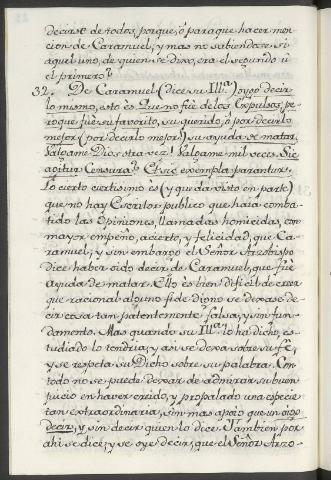 decirse de todos, porque, ò para que hacer men-
cion de Caramuel, y mas no sabiendose si
aquel uno, de quien se dixo, era el segundo ù
el primero?
32. De Caramuel (dice su Ill.ª) oygo decir
lo mismo, esto es Que no fuè de los Expulsos, pe-
ro que fuè su favorito, su querido, ò por decirlo
mejor (por decirlo mejor) su ayuda de matar.
Valgame Dios otra vez! Valgame mil veces. Sic
agitur Censura? Et sic exempla parantur.
Lo cierto ciertisimo es (y queda visto en parte)
que no hay Escritor publico que haia comba-
tido las Opiniones, llamadas homicidas, con
mayor empeño, acierto, y felicidad, que Ca-
ramuel; y sin embargo el Señor Arzobispo
dice haber oìdo decir, de Caramuel, que fuè
Ayuda de matar. Ello es bien dificil de creer
que racional alguno fide digno se dexase de-
cir cosa tan patentemente falsa, y sin fun-
damento. Mas quando su Ill.ª lo ha dicho, es-
tudiado lo tendria; y asi se dexa sobre su fè,
y se respeta su Dicho sobre su palabra. Con
todo no se puede dexar de admirar su buen
juicio en haver creido, y propalado una especie
tan extraordinaria, sin mas apoio que un oygo
decir, y sin decir quien lo dice. Tambien por
ahi se dice, y se oye decir, que el Señor Arzo-